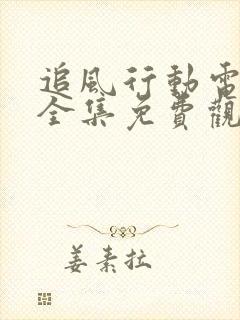 追風行動電
全集免費觀
姜素拉